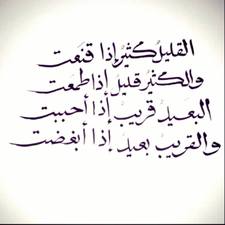 القليل كثير إذا قنعت
والكثير قليل إذا طمعت
البعيد قريب إذا أحببت
والقريب بعيد إذا أبغضت